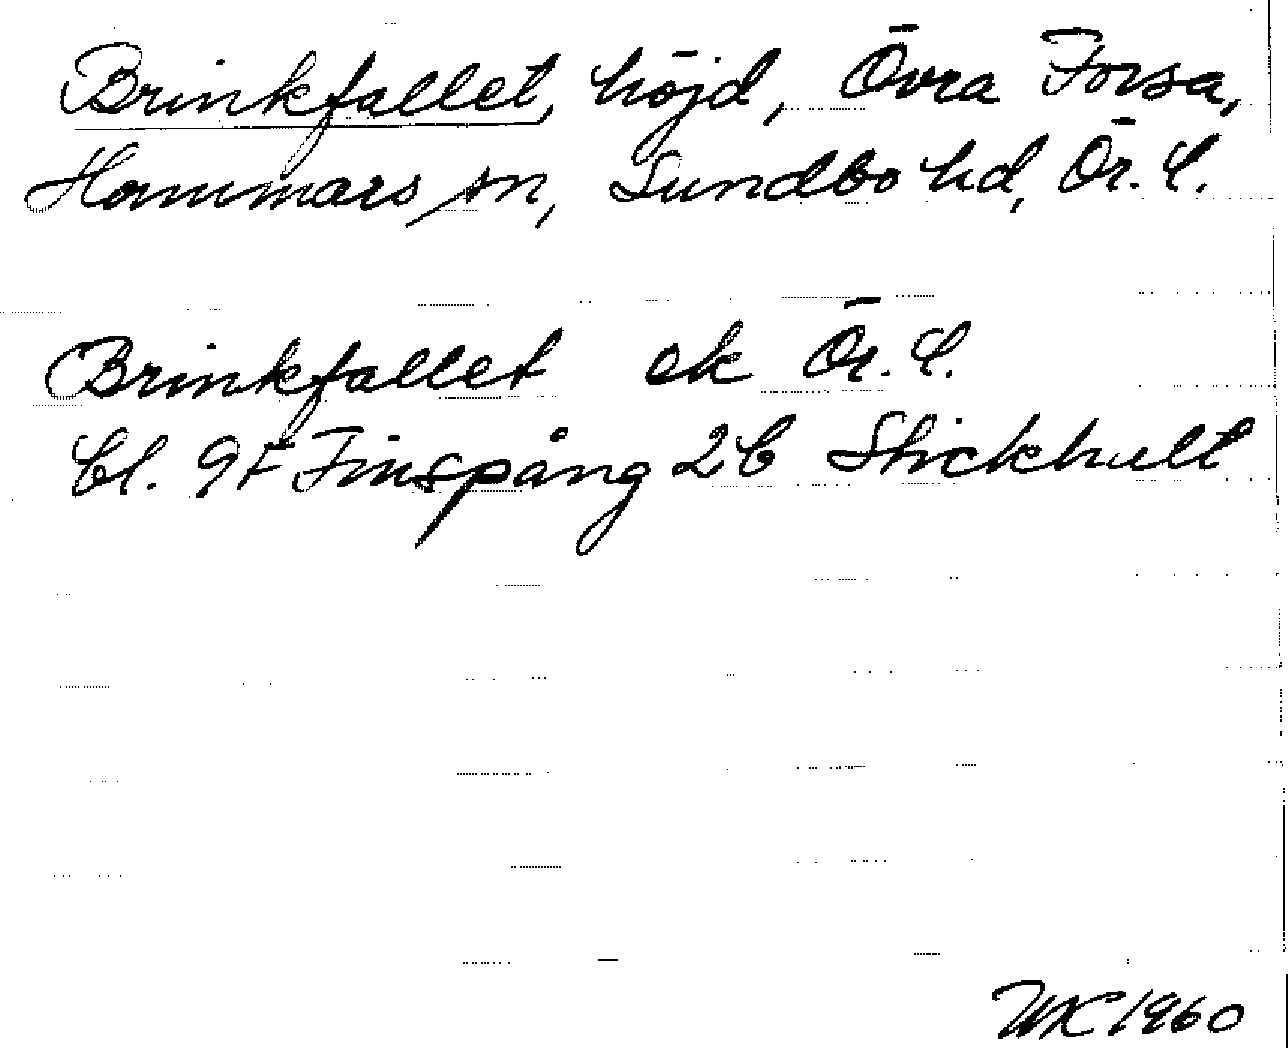 Brinkfallet, höjd, Övra Forsa,
Hammars sn, Sundbo hd, Ör. l.
Brinkfallet ek Ör. l.
bl. 9F Finspång 2b Stickhult
1960